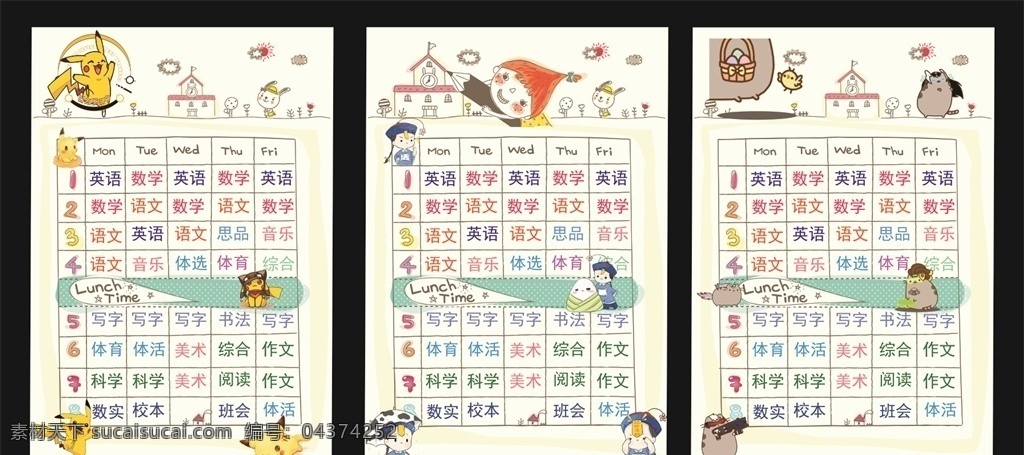 Mon Tue Wed Thu Fri
1 英语 数学 英语 数学 英语
2 数学 语文 数学 语文 数学
3 语文 英语 语文 思品 音乐
4 语文 音乐 体选 体育 综合
Lunch
Time
5 写字 写字 写字 书法 写字
6 体育 体活 美术 综合 作文
7 科学 科学 美术 阅读 作文
8 数实 校本 班会 体活
Mon Tue Wed Thu Fri
1 英语 数学 英语 数学 英语
2 数学 语文 数学 语文 数学
3 语文 英语 语文 思品 音乐
4 语文 音乐 体选 体育 综合
Lunch
Time
5 写字 写字 写字 书法 写字
6 体育 体活 美术 综合 作文
7 科学 科学 美术 阅读 作文
数实 校本 班会 体活
Mon Tue Wed Thu Fri
1 英语 数学 英语 数学 英语
2 数学 语文 数学 语文 数学
3 语文 英语 语文 思品 音乐
4 语文 音乐 体选 体育 综合
Lunch
Time
5 写字 写字 写字 书法 写字
6 体育 体活 美术 综合 作文
7 科学 科学 美术 阅读 作文
8 数实 校本 班会 体活
素材天下 sucaisucai.com 编号：04374252